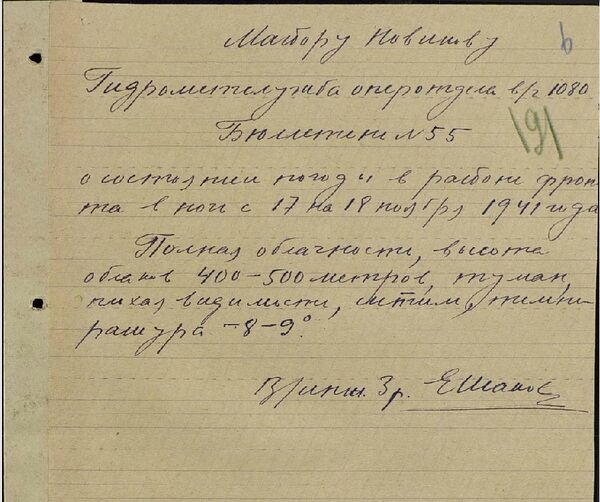 Майору Новикову
6
Гидрометслужба оперотдела в/ч 1080
Бюллетень N 55
191
о состоянии погоды в районе фрон
та в ночь с 17 на 18 ноября 1941 года
Полная облачность, высота
облаков 400-500 метров, туман,
плохая видимость, штиль, темпе-
ратура -8-9°.